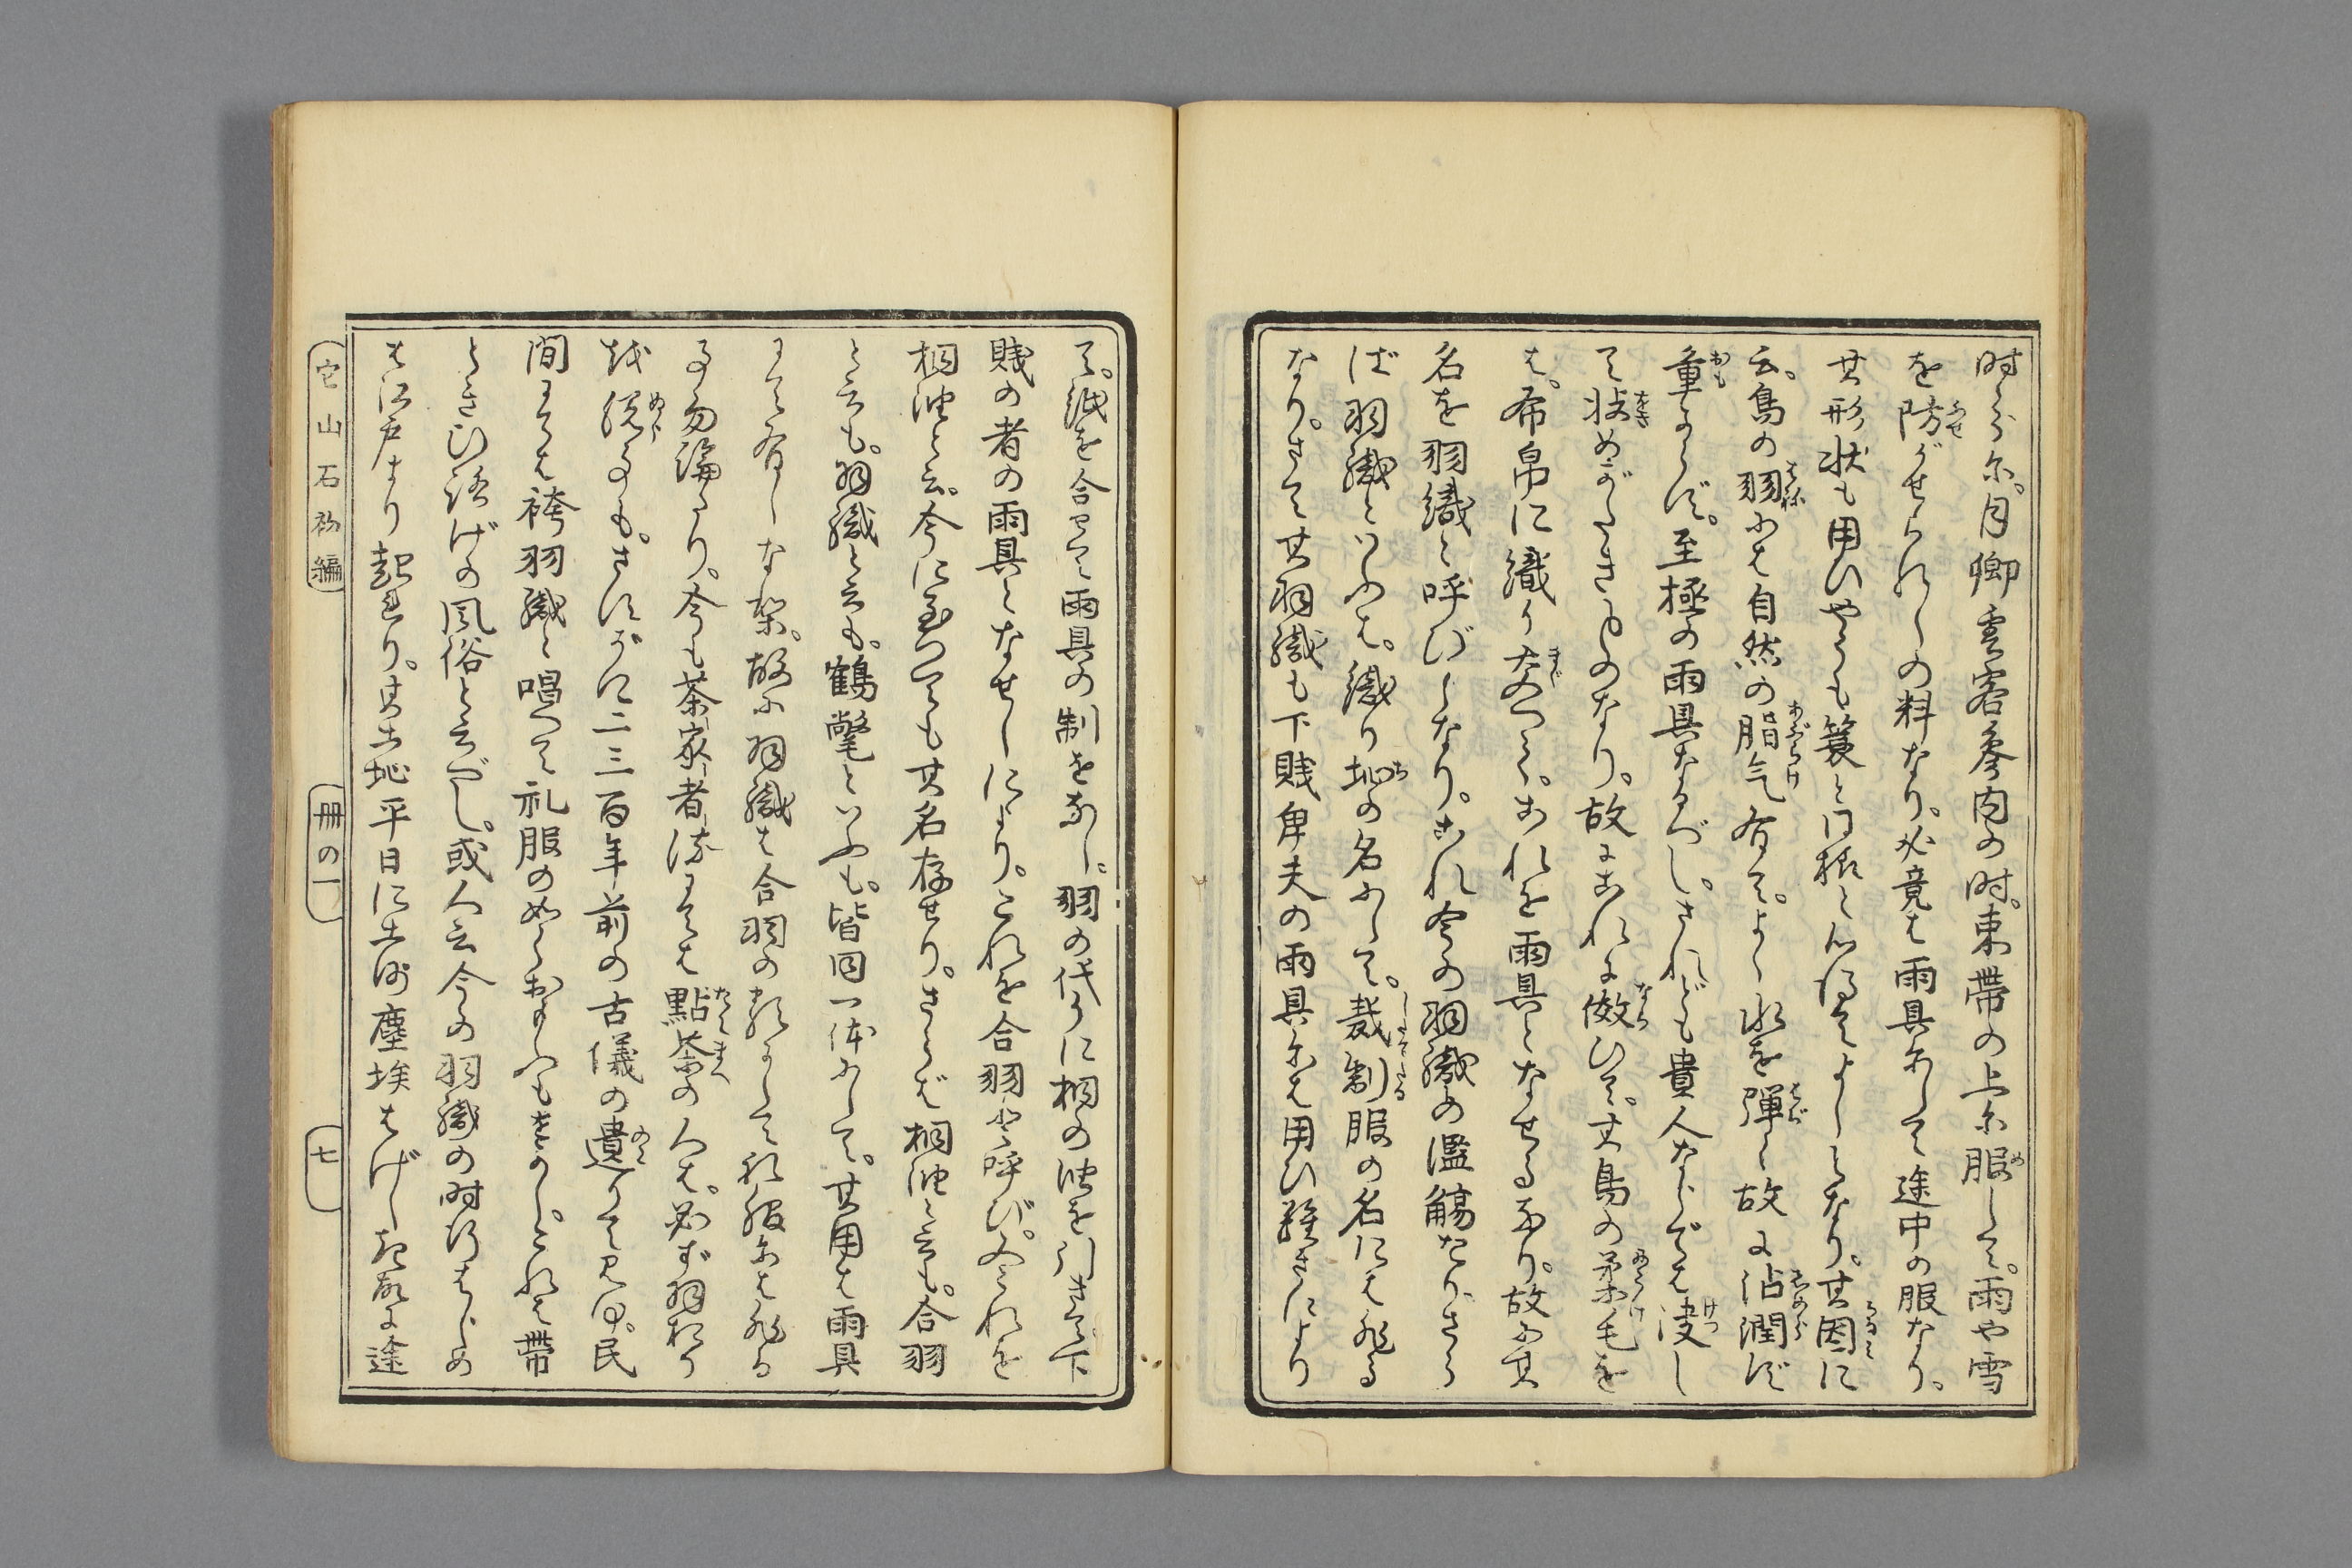 時分に。月卿雲客参内の時。束帯の上に服して。雨や雪
を防がせられしの料なり。必竟は雨具にして途中の服なり。
其形状も用ひやうも簑と同様と心得てよしとなり。其因に
云。鳥の羽には自然の脂気有て。よく水を弾く故に沾潤ず
重からず。至極の雨具なるべし。されども貴人ならでは浸し
て求めがたきものなり。故にこれに倣ひて。其鳥の柔毛を
は。布帛に織り交へて。これを雨具となせるなり。故に其
名を羽織と呼びしなり。これ今の羽織の濫觴たり。さら
ば羽織といふは。織り地の名にして。裁制服の名には非る
なり。さて其羽織も下賎卑夫の雨具には用ひ難きにより
て。紙を合せて雨具の制をなし。羽の代りに桐の油を引きて。下
賎の者の雨具となせしにより。これを合羽と呼び。又これを
桐油と云。今に至つても其名存せり。さらば桐油と云も。合羽
と云も。羽織と云も。鶴氅といふも。皆同一体にして。其用は雨具
にて有しな梨。故に羽織は合羽の類にして礼服には非る
事勿論なり。今も茶家者流にては點茶の人は。必ず羽折り
を脱ぐ事も。さすがに二三百年前の古儀の遺りて見ゆ。民
間にては袴羽織と唱へて礼服の如くおもふもをかし。これは帯
ときひろげの風俗と云べし。或人云今の羽織の時行はじめ
は江戸より起れり。其土地平日に土砂塵埃はげしき故に途
它山石初編
冊の一
七